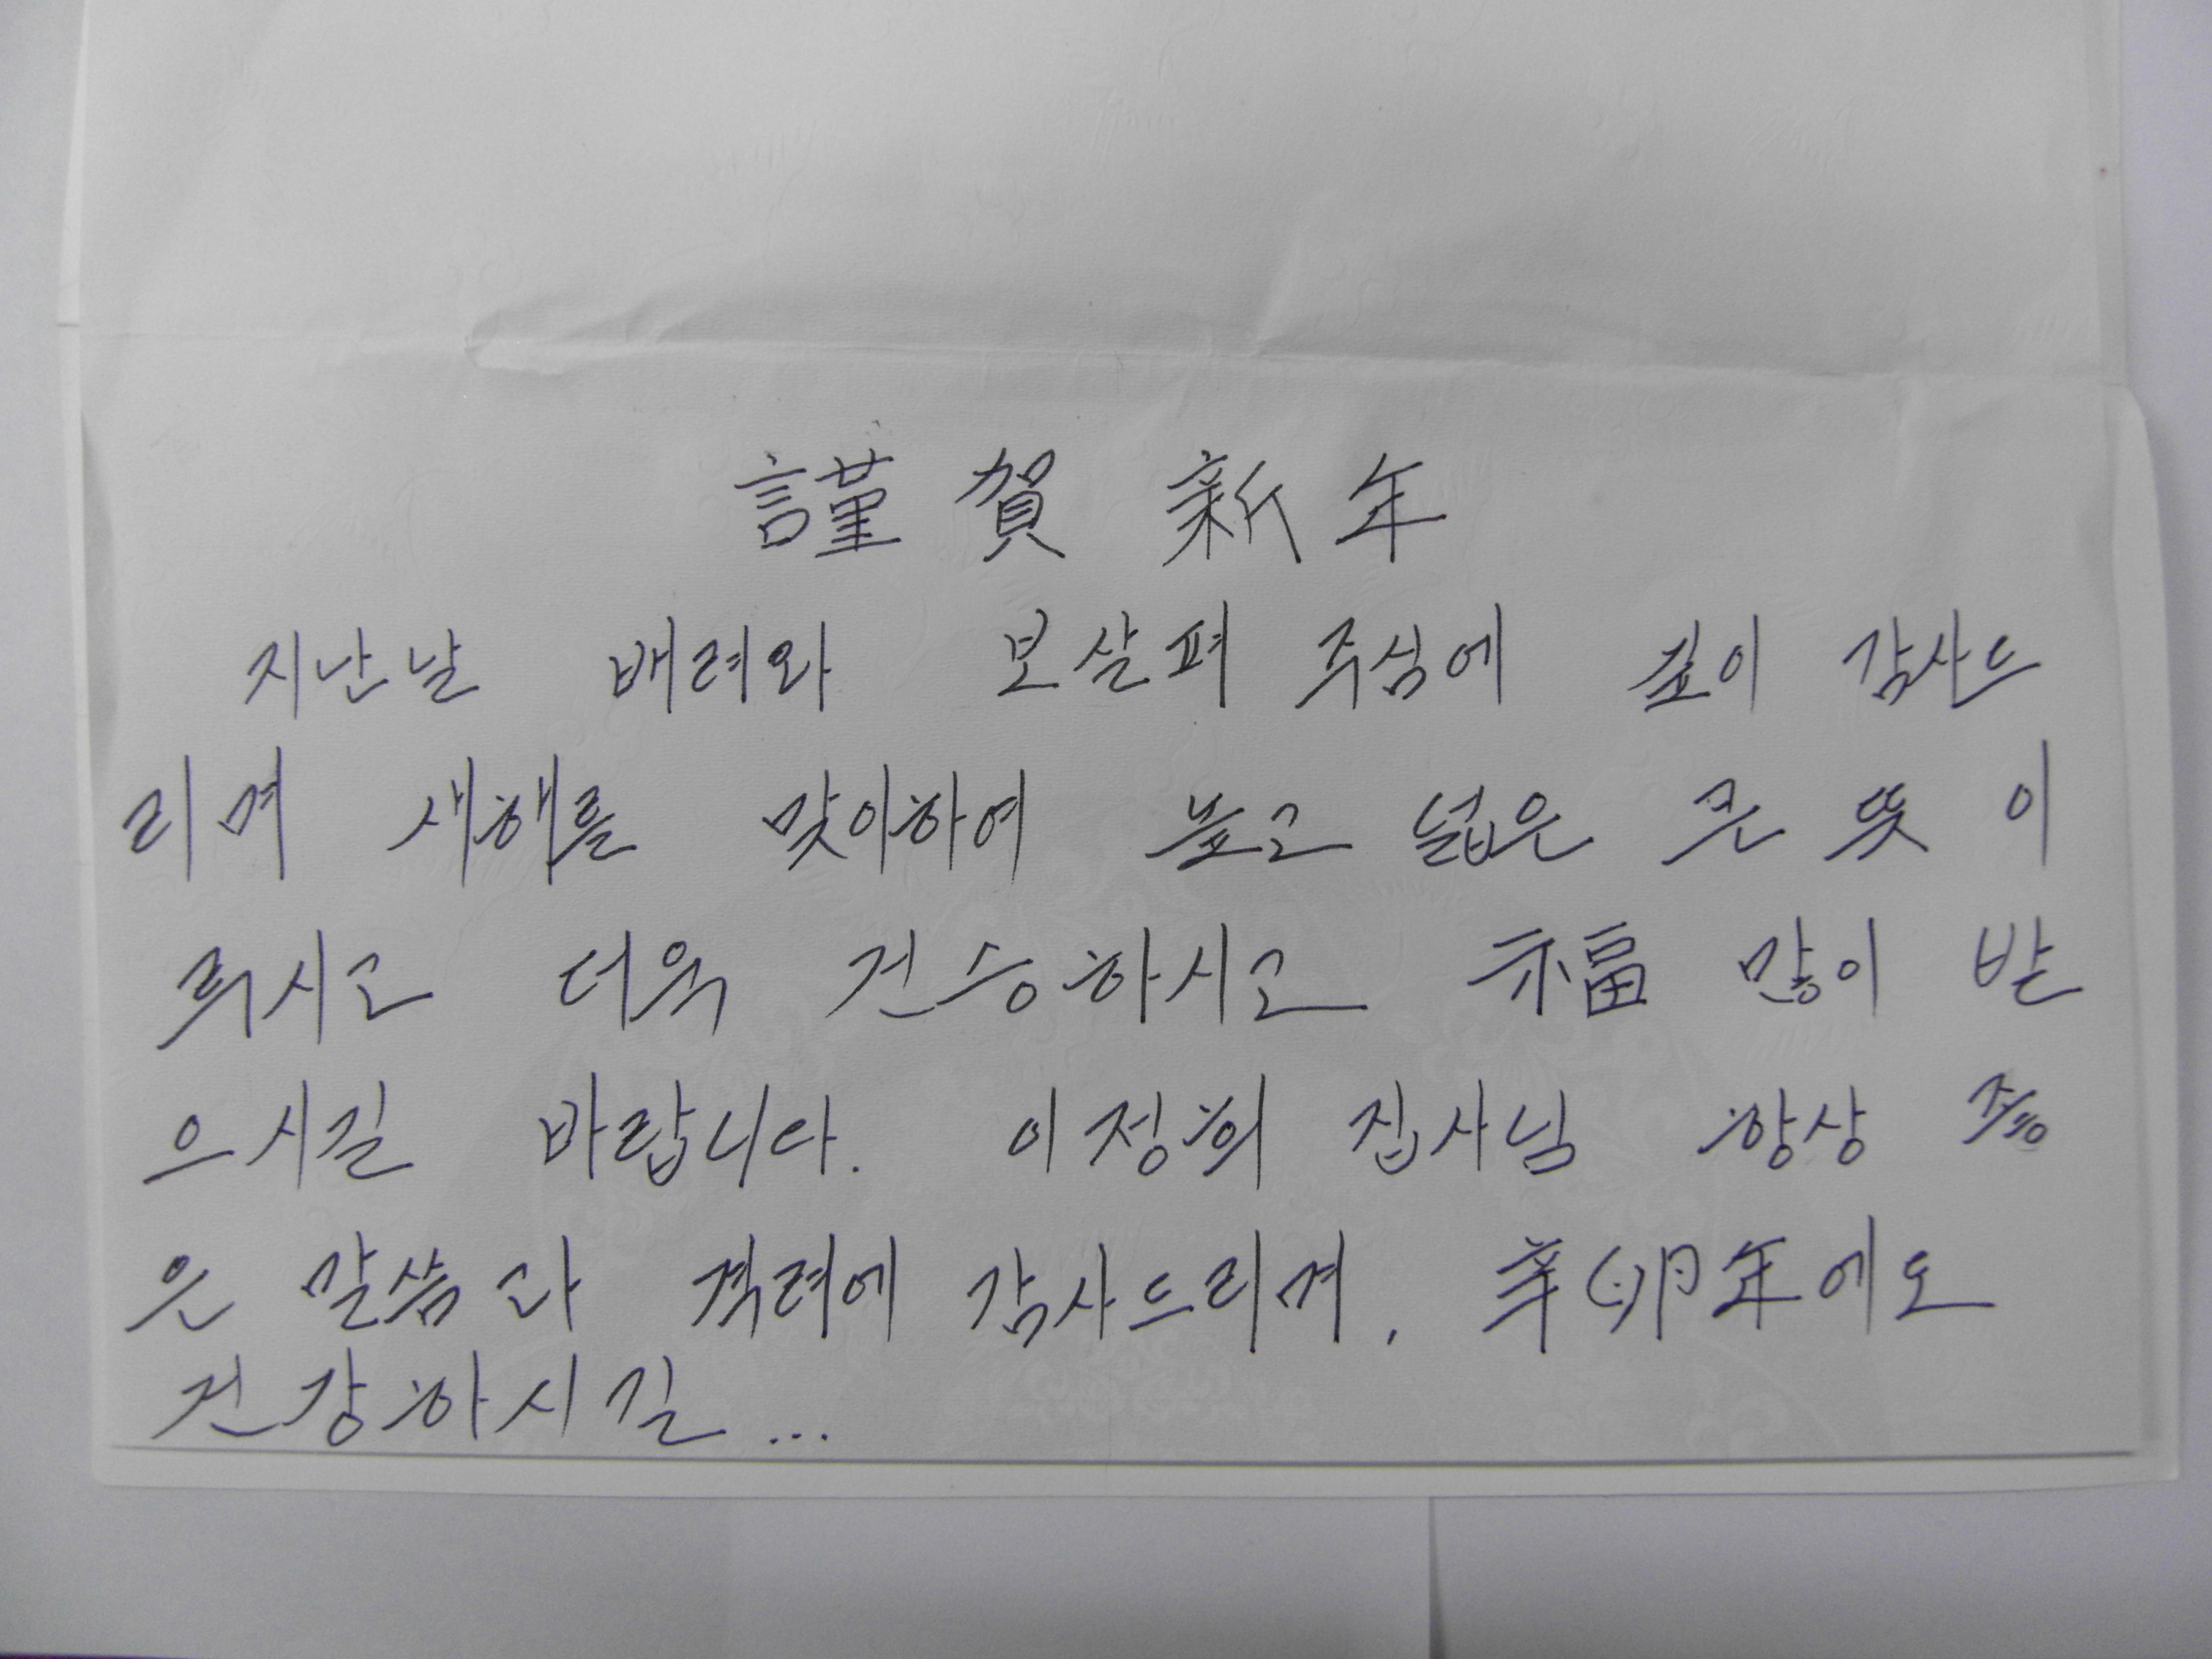 謹賀新年
지난날 배려와 보살펴 주심에 깊이 감사드
리며 새해를 맞이하여 높고 넓은 큰 뜻 이
뤄시고 더욱 건승하시고 福 많이 받
으시길 바랍니다. 이정희 집사님 항상 좋
은 말씀과 격려에 감사드리며, 辛卯年에도
건강하시길...